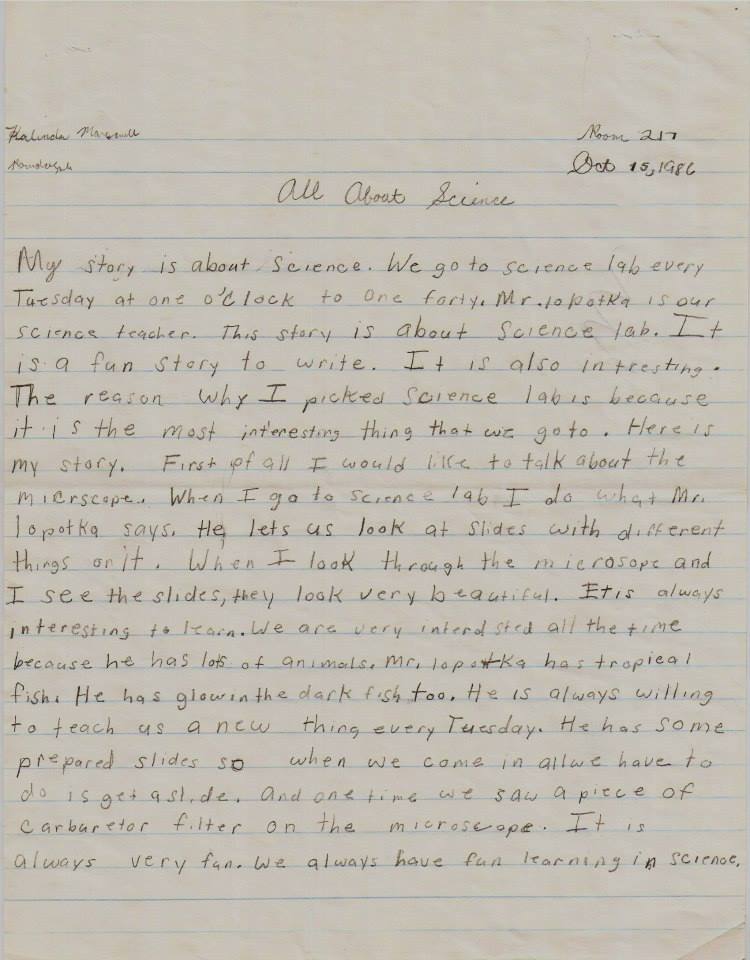 Kalinda Room 217
Oct 15, 1986
All About Science
My story is about Science. We go to science lab every
Tuesday at one o'Clock to one forty. Mr. lopotka is our
science teacher. This story is about Science lab. It
is a fun story to write. It is also intresting.
The reason why I picked Science lab is because
it is the most interesting thing that we go to. Here is
my story. First of all I would like to talk about the
micrscope. When I go to science lab I do what Mr.
lopotka says. He lets us look at slides with different
things on it. When I look through the microsope and
I see the slides, they look very beautiful. It is always
interesting to learn. We are very interdsted all the time
because he has lots of animals. Mr. lopotka has tropical
fish. He has glow in the dark fish too. He is always willing
to teach us a new thing every Tuesday. He has some
prepared slides so when we come in all we have to
do is get a slide. And one time we saw a piece of
carburetor filter on the microscope. It is
always very fun. We always have fun learning in science.